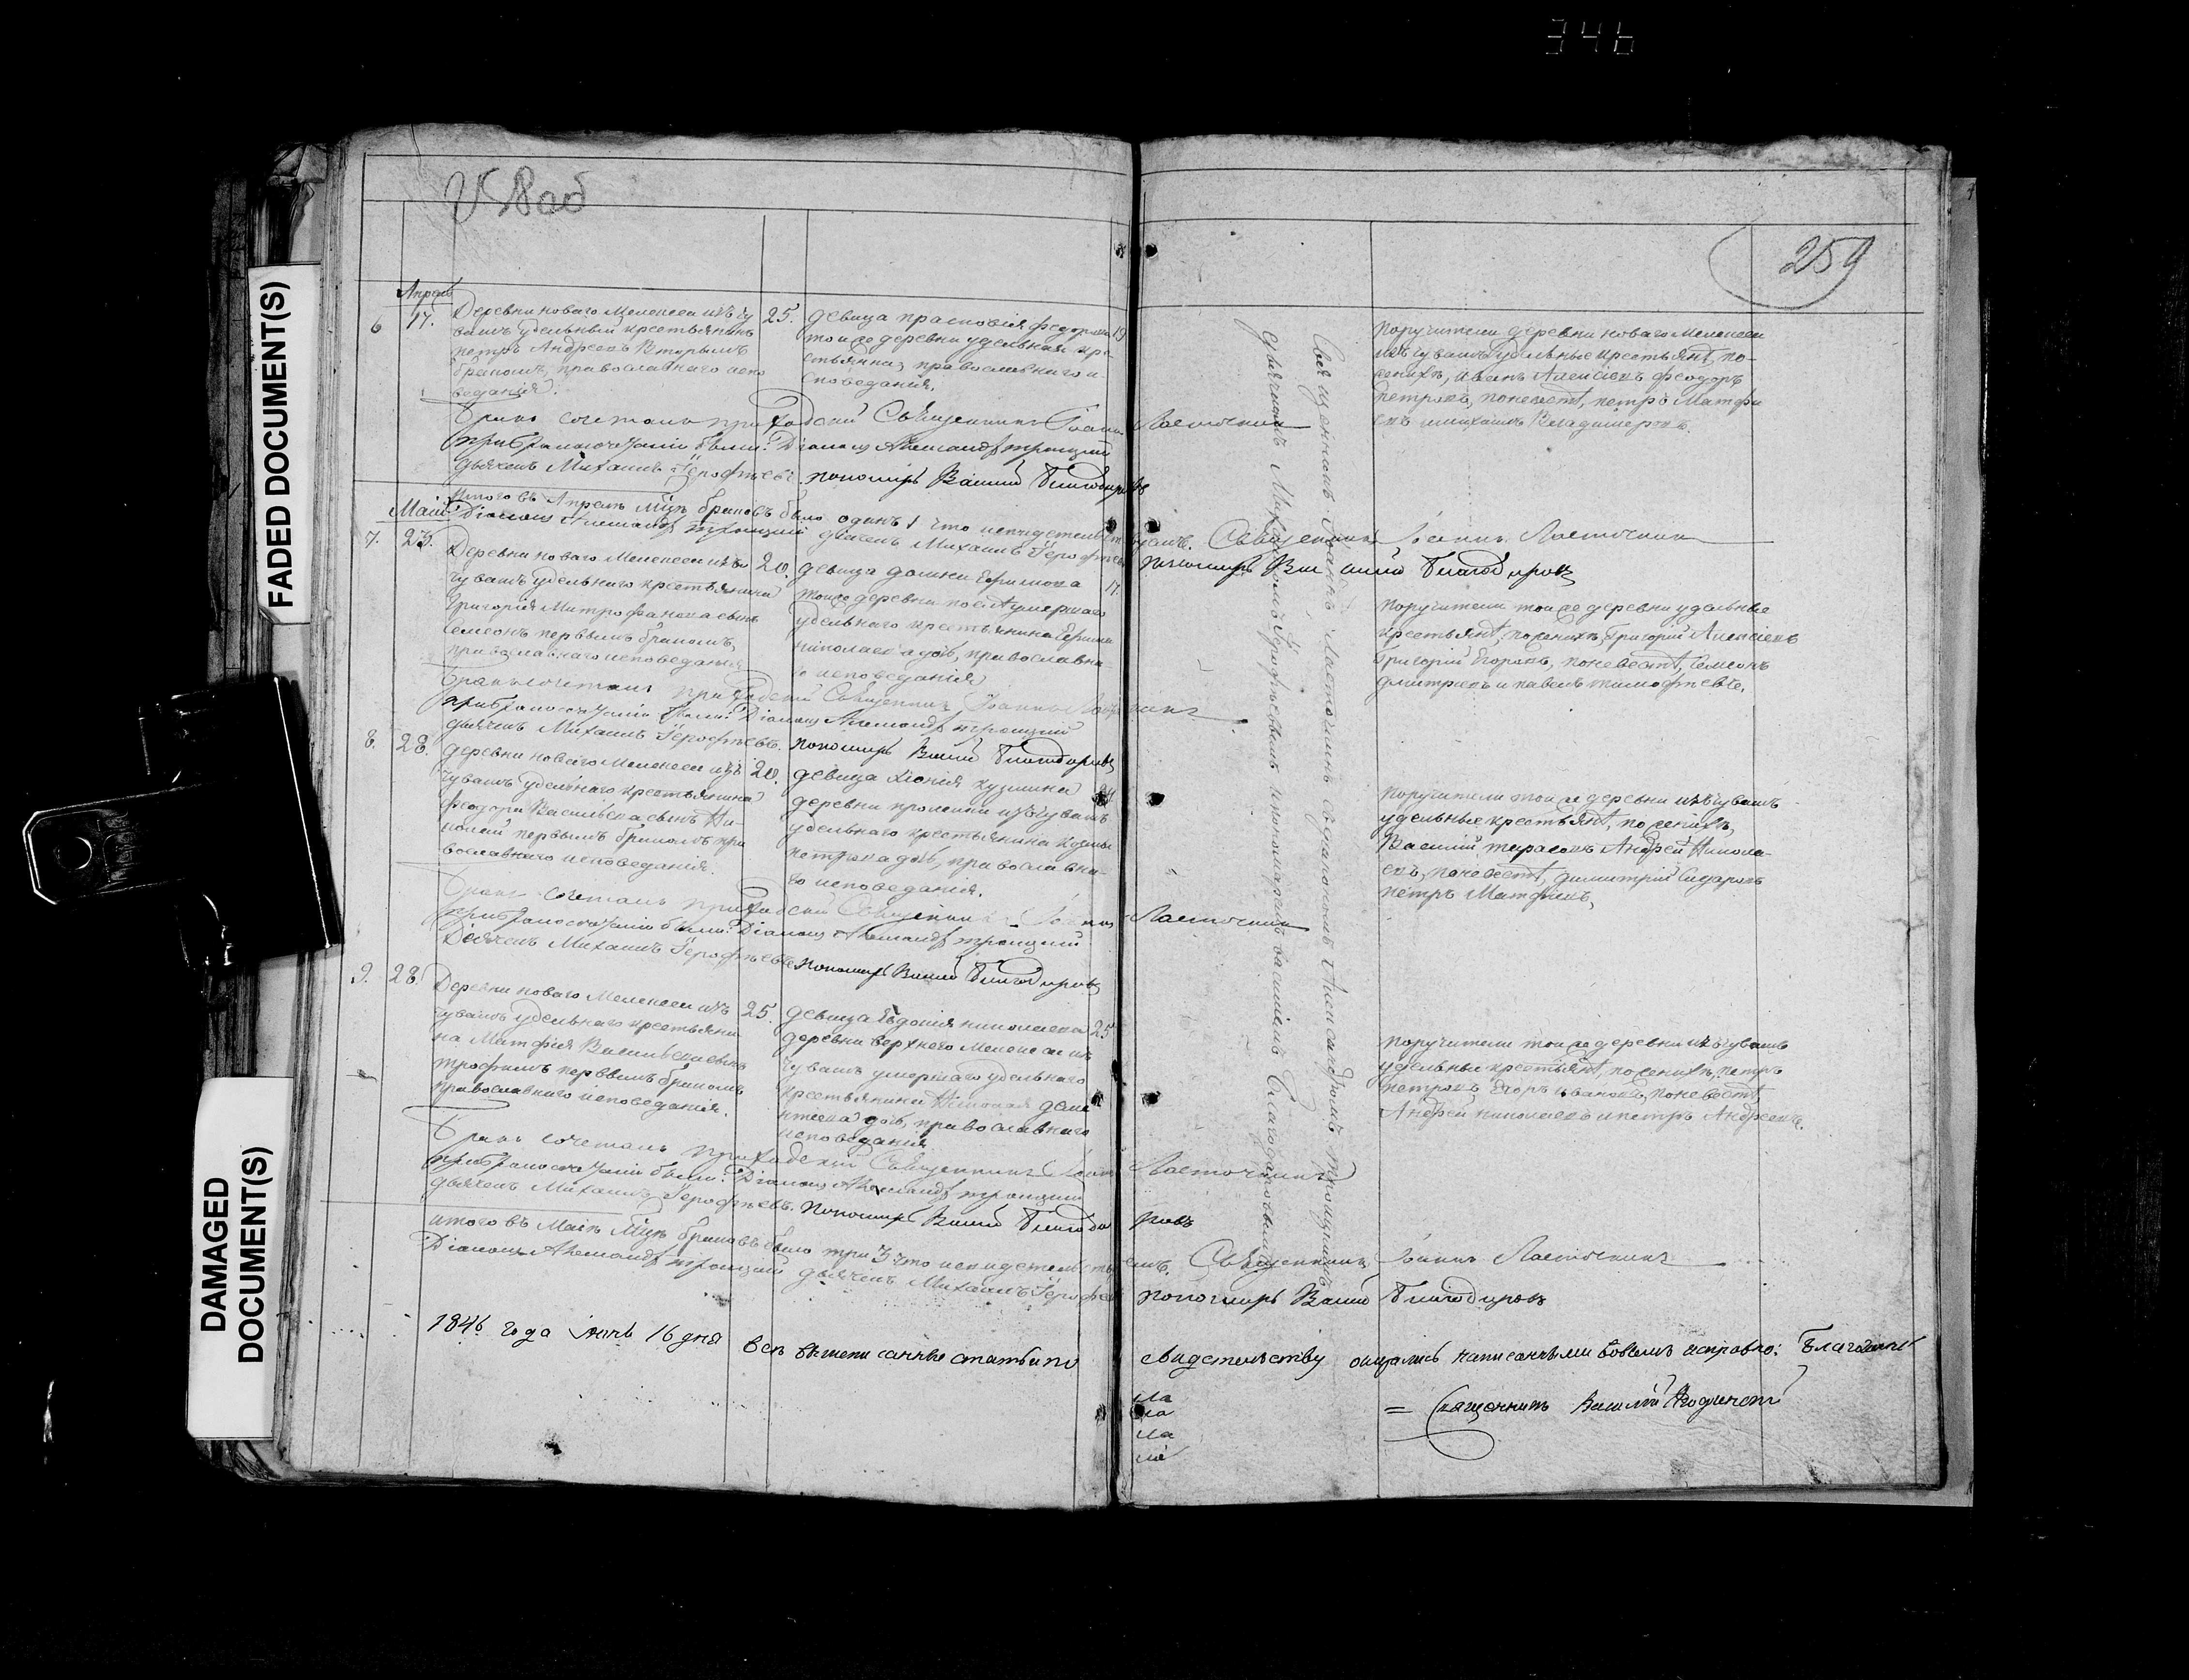 346
259
FADED DOCUMENT(S)
DAMAGED
DOCUMENT(S)
Апрель
6 17. Деревни новаго Мелекеса изъ чу
вашъ удельный крестьянинъ
петръ Андреевъ Вторымъ
бракомъ, православнаго испо
веданія.
25.
девица прасковія феодорова 19
той же деревни удельная кре
стьянка, православнаго и
споведанія.
поручители деревни новаго Мелекеса
изъ чувашъ удельные крестьянѣ, по
женихѣ, иванъ Алексѣевъ феодоръ
петровъ, поневестѣ, петръ Матфи
евъ имихаилъ Владимеровъ.
Бракъ сочеталъ приходскій Священникъ Іоаннъ Ласточкинъ
при бракосочетаніи были: Діаконъ Александръ троицкій
дьячекъ Михаилъ Ерофѣевъ. пономарь Василій Благодаровъ
Итого въ Апрелѣ Мцѣ браковъ было одинъ 1 что исвидетельствуемъ. Священникъ Іоаннъ Ласточкинъ
Діаконъ Александръ троицкій дьячекъ Михаилъ Ерофѣевъ пономарь Василій Благодаровъ
Маій
7. 23. Деревни новаго Мелекеса изъ
чувашъ удельнаго крестьянина
Григорія Митрофанова сынъ
Семеонъ первымъ бракомъ,
православнаго исповеданія
20.
девица домна Ефимова 17.
той же деревни послѣ умершаго
удельнаго крестьянина Ефима
николаева дочь, православна-
го исповеданія
поручители той же деревни удельные
крестьянѣ, поженихѣ, Григорій Алексѣевъ
Григорій Егоровъ, поневестѣ, Семеонъ
дмитріевъ и павелъ тимофѣевъ.
Бракъ сочеталъ приходскій Священникъ Іоаннъ Ласточкинъ
при бракосочетаніи были: Діаконъ Александръ троицкій
дьячекъ Михаилъ Ерофѣевъ. пономарь Василій Благодаровъ
8. 28. деревни новаго Мелекеса изъ
чувашъ удельнаго крестьянина
феодора Васильева сынъ Ни-
колай первымъ бракомъ пра
вославнаго исповеданія.
20.
девица хіонія кузмина
деревни изъ чувашъ
удельнаго крестьянина кузмы
петрова дочь, православна-
го исповеданія.
поручители той же деревни изъ чувашъ
удельные крестьянѣ, по женихѣ,
Василій тарасовъ Андрей Никола-
евъ, поневестѣ, димитрій Сидаровъ
петръ Матфиевъ,
Бракъ сочеталъ приходскій Священникъ Іоаннъ Ласточкинъ
при бракосочетаніи были: Діаконъ Александръ троицкій
Дьячекъ Михаилъ Ерофѣевъ пономарь Василій Благодаровъ
9. 28. Деревни новаго Мелекеса изъ
чувашъ удельнаго крестьяни
на Матфія Васильева сынъ
трофимъ первымъ бракомъ
православнаго исповеданія.
25.
девица Евдокія николаева 25
деревни верхнего Мелекеса изъ
чувашъ умершаго удельнаго
крестьянина Николая деме
нтиева дочь, православнаго
исповеданія
поручители той же деревни изъ чувашъ
удельные крестьянѣ, поженихѣ, петръ
петровъ, Егоръ ивановъ, поневестѣ
Андрей николаевъ и петръ Андреевъ.
Бракъ сочеталъ приходскій Священникъ Іоаннъ Ласточкинъ
при бракосочетаніи были: Діаконъ Александръ троицкій
дьячекъ Михаилъ Ерофѣевъ. Пономарь Василій Благодаровъ
итого въ Маіѣ Мцѣ браковъ было три 3 что исвидетельствуемъ. Священникъ Іоаннъ Ласточкинъ
Діаконъ Александръ троицкій дьячекъ Михаилъ Ерофѣевъ пономарь Василій Благодаровъ
Священникомъ Іоанномъ Ласточкинымъ содіакономъ Александромъ троицкимъ
дьячкомъ Михаиломъ Ерофѣевымъ ипономаремъ василіемъ Благодаровымъ
1846 года 16 дня все вышеписанные статьи по свидетельству оказались написанными вовсемъ исправно: Благочинный
= Священникъ Василій